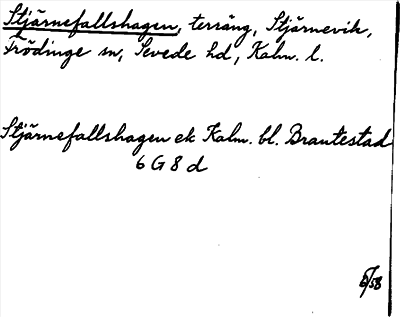 Stjärnefallshagen, terräng, Stjärnevik,
Frödinge sn, Sevede hd, Kalm. l.
Stjärnefallshagen ek Kalm. bl. Brantestad
6 G 8 d
5/58